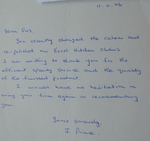 11.4.06
Dear Sirs,
You recently changed the colour and
re-polished my
I am writing to thank you for the
efficient, speedy service and the quality
of the finished product.
I would have no hesitation in
using your firm again or recommending
you.
Yours sincerely,